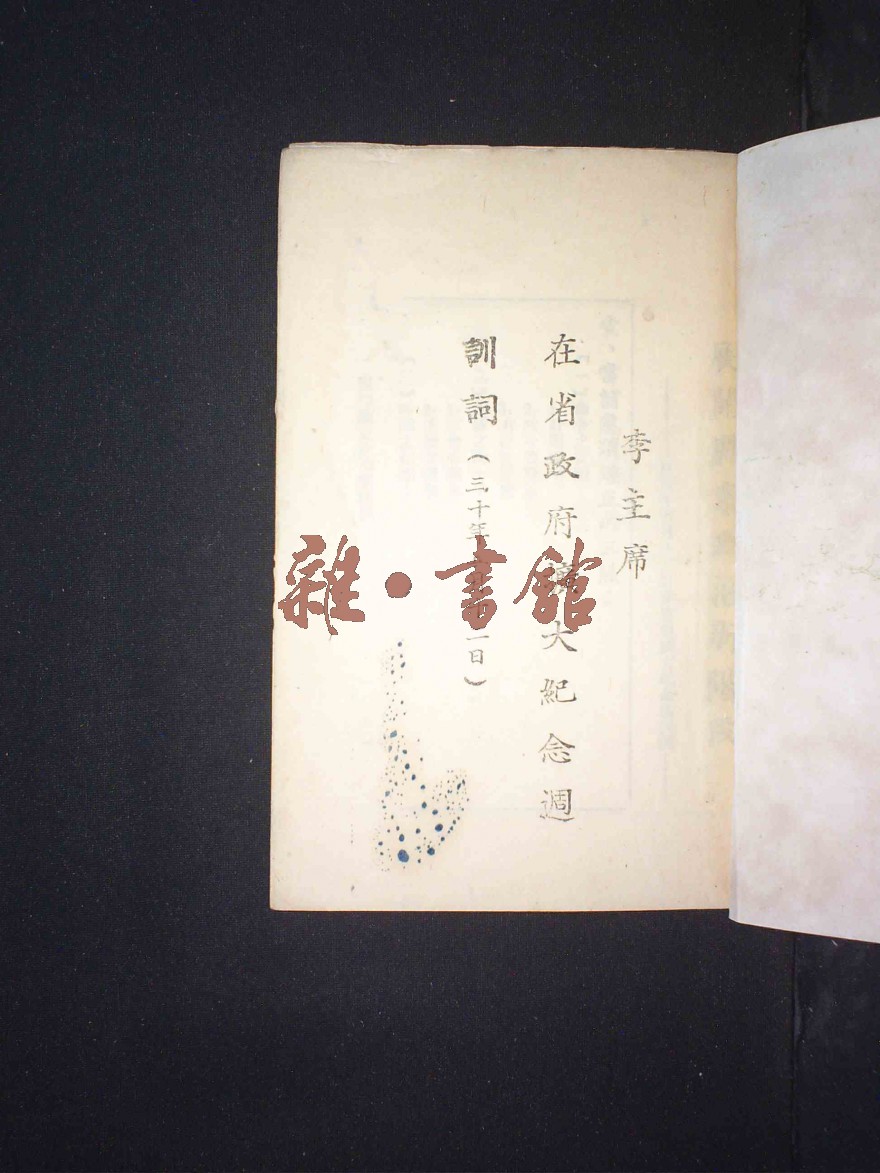 李主席
在省政府擴大紀念週
訓詞（三十年 一日）
雜·書館